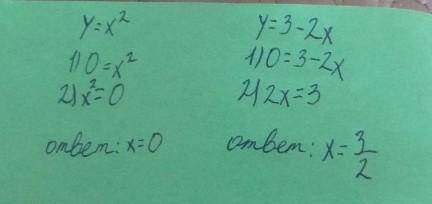 y=x²
1) 0=x²
2) x²=0
ответ: x=0
y=3-2x
1) 0=3-2x
2) 2x=3
ответ: x=3/2